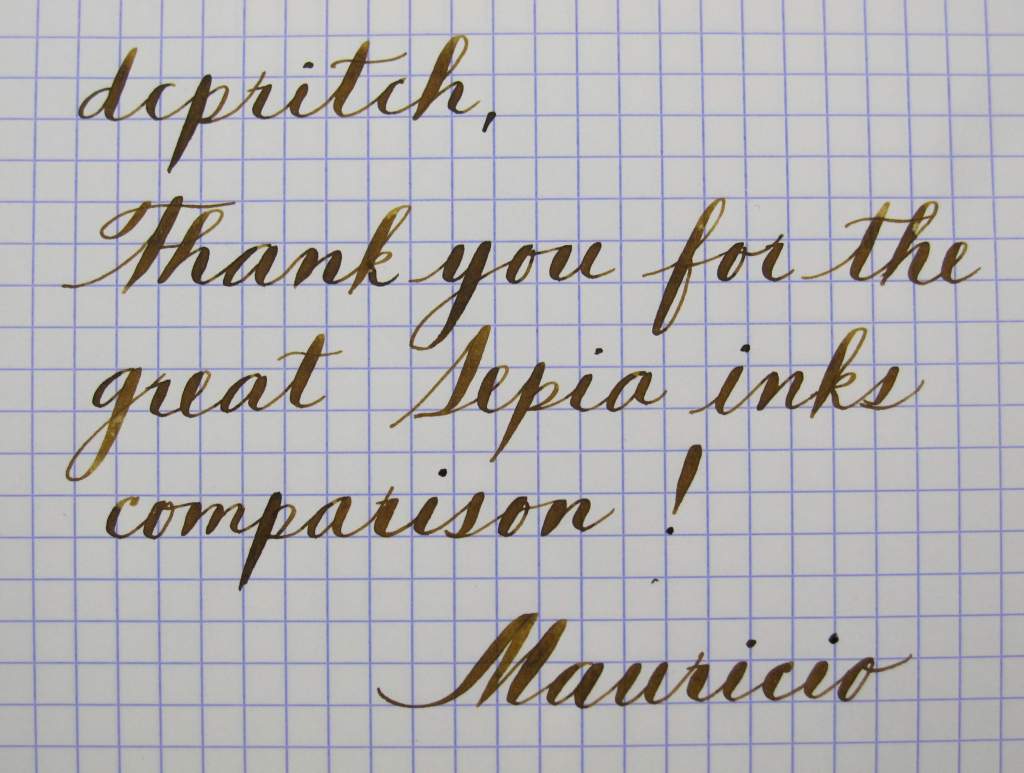 dcpritch,
Thank you for the
great Sepia inks
comparison !
Mauricio